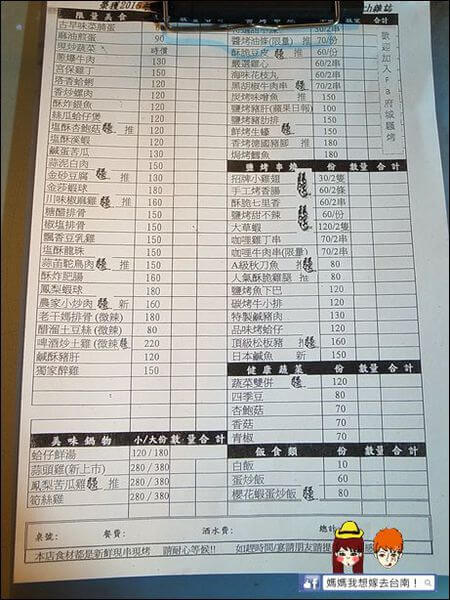 榮獲2016
限量美食 數量 合計
古早味菜脯蛋
麻油煎蛋 90
現炒蔬菜 時價
蔥爆牛肉 130
宮保雞丁 150
塔香蛤蜊 120
香炒螺肉 150
酥炸銀魚 150
絲瓜蛤仔煲 120
塩酥杏鮑菇 推
塩酥溪蝦 120
鹹蛋苦瓜 130
蒜泥白肉 150
金砂豆腐 推 130
金莎蝦球 180
川味椒麻雞 推 160
糖醋排骨 150
椒塩排骨 150
飄香豆乳雞 150
塩酥龍珠 150
蒜苗鴕鳥肉 推 150
酥炸肥腸 160
鳳梨蝦球 180
農家小炒肉 新 160
老干媽排骨 (微辣) 160
醋溜土豆絲 (微辣) 80
啤酒炒土雞 (微辣) 220
鹹酥豬肝 120
獨家醉雞 150
美味鍋物 小/大份 數量 合計
蛤仔鮮湯 120 / 180
蒜頭雞(新上市) 280 / 380
鳳梨苦瓜雞 推 280 / 380
筍絲雞 280 / 380
數量 合計
醬烤油條(限量) 推 70/份
酥脆豆皮 推 60/份
嚴選雞心 60/2串
海味花枝丸 60/2串
黑胡椒牛肉串 70/2串
炭烤味噌魚 推 150
鹽烤豬肝(蘋果日報) 100
鹽烤豬肋排 150
鮮烤生蠔 推 150
香烤德國豬腳 推 180
焗烤鱈魚 180
歡迎加入FB府城騷烤
鹽烤串燒 份 數量 合計
招牌小雞翅 30/2隻
手工烤香腸 60/2條
酥脆七里香 60/2串
鹽烤甜不辣 60/份
大草蝦 120/2隻
咖哩雞丁串 70/2串
咖哩牛肉串(限量) 70/2串
A級秋刀魚 推 80
人氣酥脆雞腿 推 80
鹽烤魚下巴 120
碳烤牛小排 120
特製鹹豬肉 130
品味烤蛤仔 120
頂級松板豬 推 160
日本鹹魚 新 150
健康蔬菜 份 數量 合計
蔬菜雙併 120
四季豆 80
杏鮑菇 70
香菇 70
青椒 70
飯食類 份 數量 合計
白飯 10
蛋炒飯 60
櫻花蝦蛋炒飯 80
桌號: 餐費: 酒水費: 總計
本店食材都是新鮮現串現烤 請耐心等候!! 如趕時間/宴請朋友請提
媽媽我想嫁去台南!